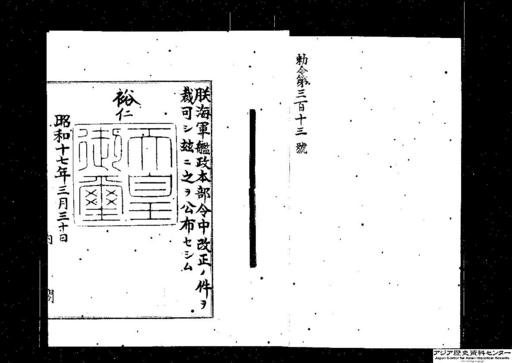 勅令第三百十三號
朕海軍艦政本部令中改正ノ件ヲ
裁可シ玆ニ之ヲ公布セシム
裕仁
天皇
御璽
昭和十七年三月三十日
内閣
アジア歴史資料センター
Japan Center for Asian Historical Records